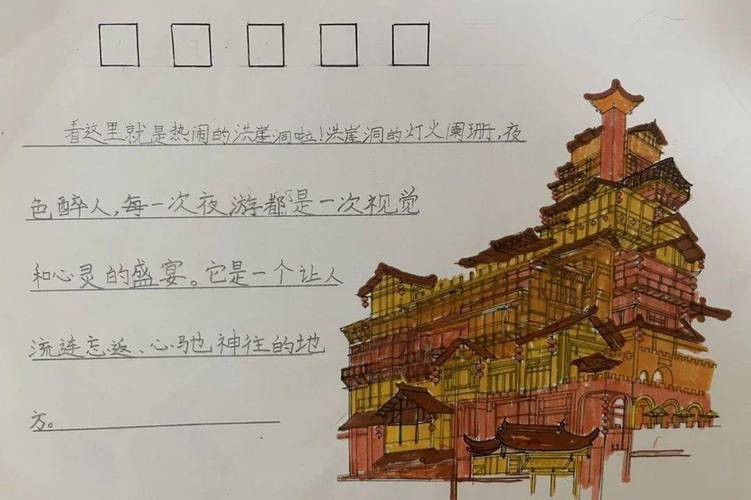 看这里就是热闹的洪崖洞啦!洪崖洞的灯火阑珊,夜
色醉人,每一次夜游都是一次视觉
和心灵的盛宴。它是一个让人
流连忘返、心驰神往的地
方。